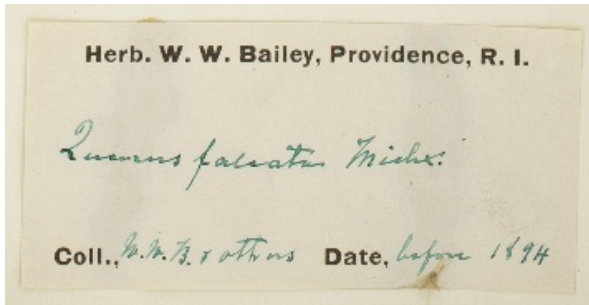 Herb. W. W. Bailey, Providence, R. I.
Quercus falcata Michx.
Coll., W.W.B. & others Date, before 1894